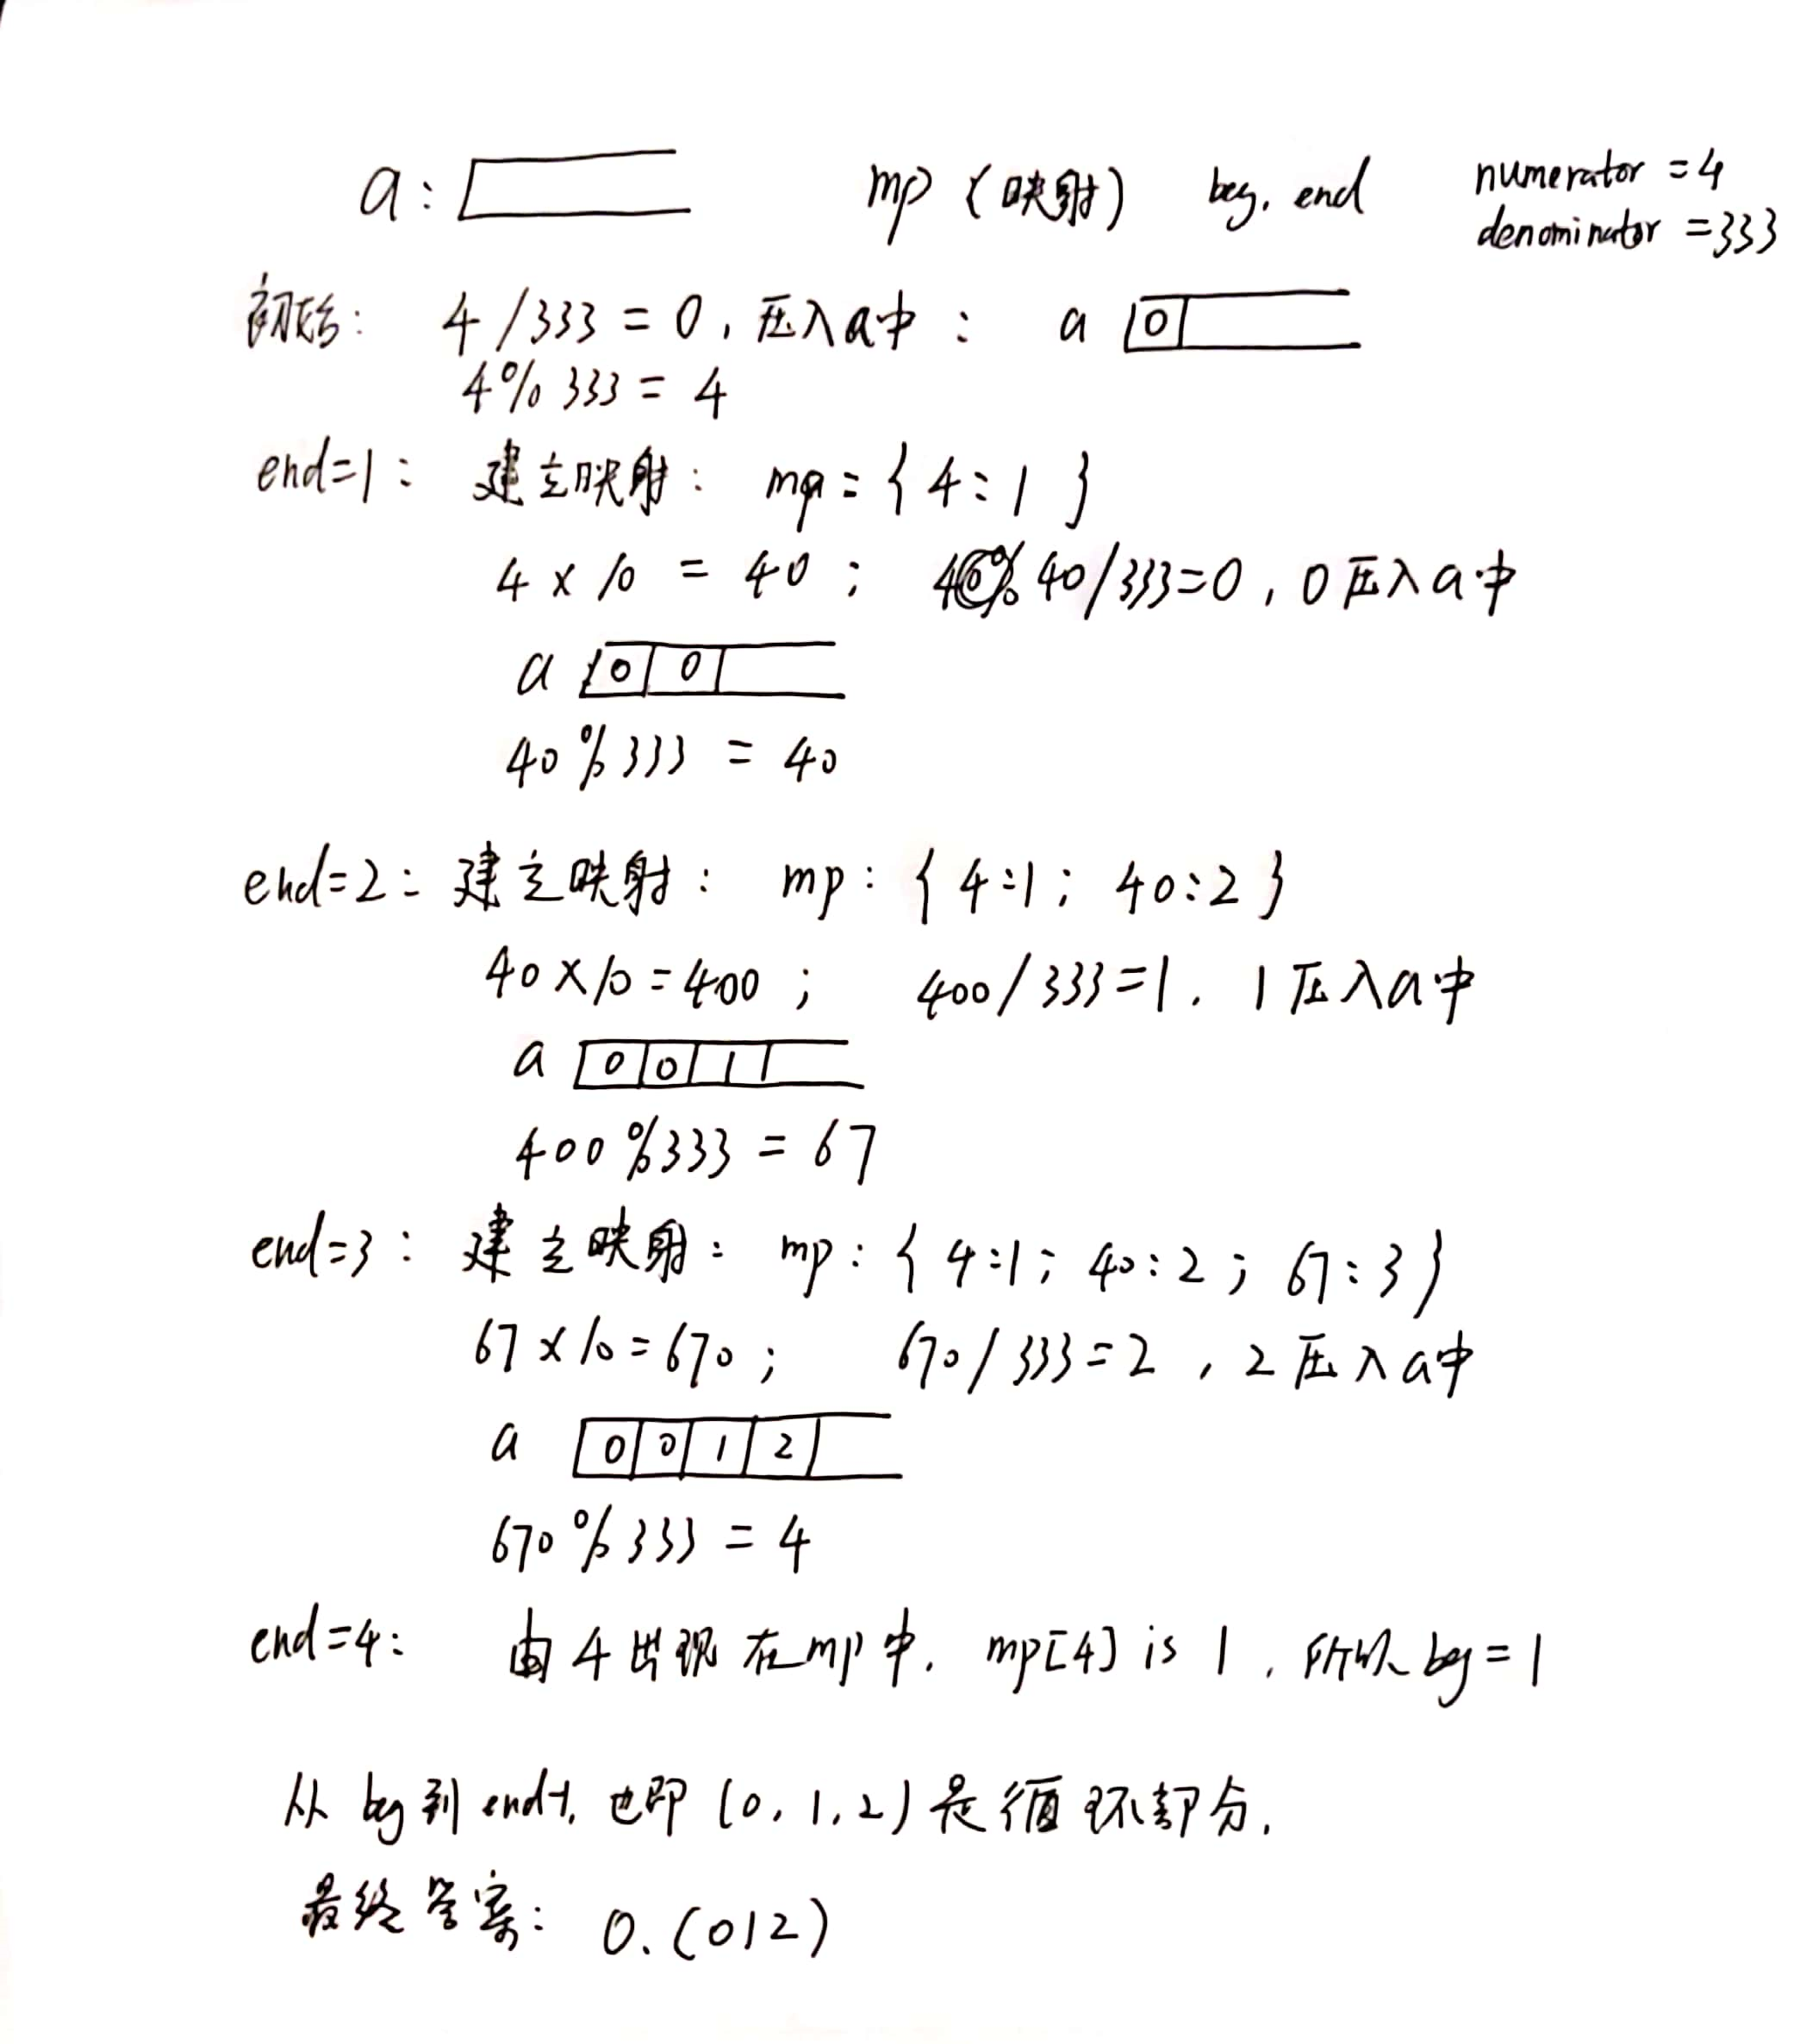 a: mp (映射) beg, end numerator = 4
denominator = 333
初始: 4/333 = 0, 压入a中: a 0
4%333 = 4
end=1: 建立映射: mp={4:1}
4×10 = 40; 40/333=0, 0压入a中
a 0 0
40%333 = 40
end=2: 建立映射: mp:{4:1; 40:2}
40×10=400; 400/333=1. 1压入a中
a 0 0 1
400%333 = 67
end=3: 建立映射: mp:{4:1; 40:2; 67:3}
67×10=670; 670/333=2, 2压入a中
a 0 0 1 2
670%333 = 4
end=4: 由4出现在mp中, mp[4] is 1, 所以beg=1
从beg到end-1, 也即(0, 1, 2)是循环部分.
最终答案: 0.(012)